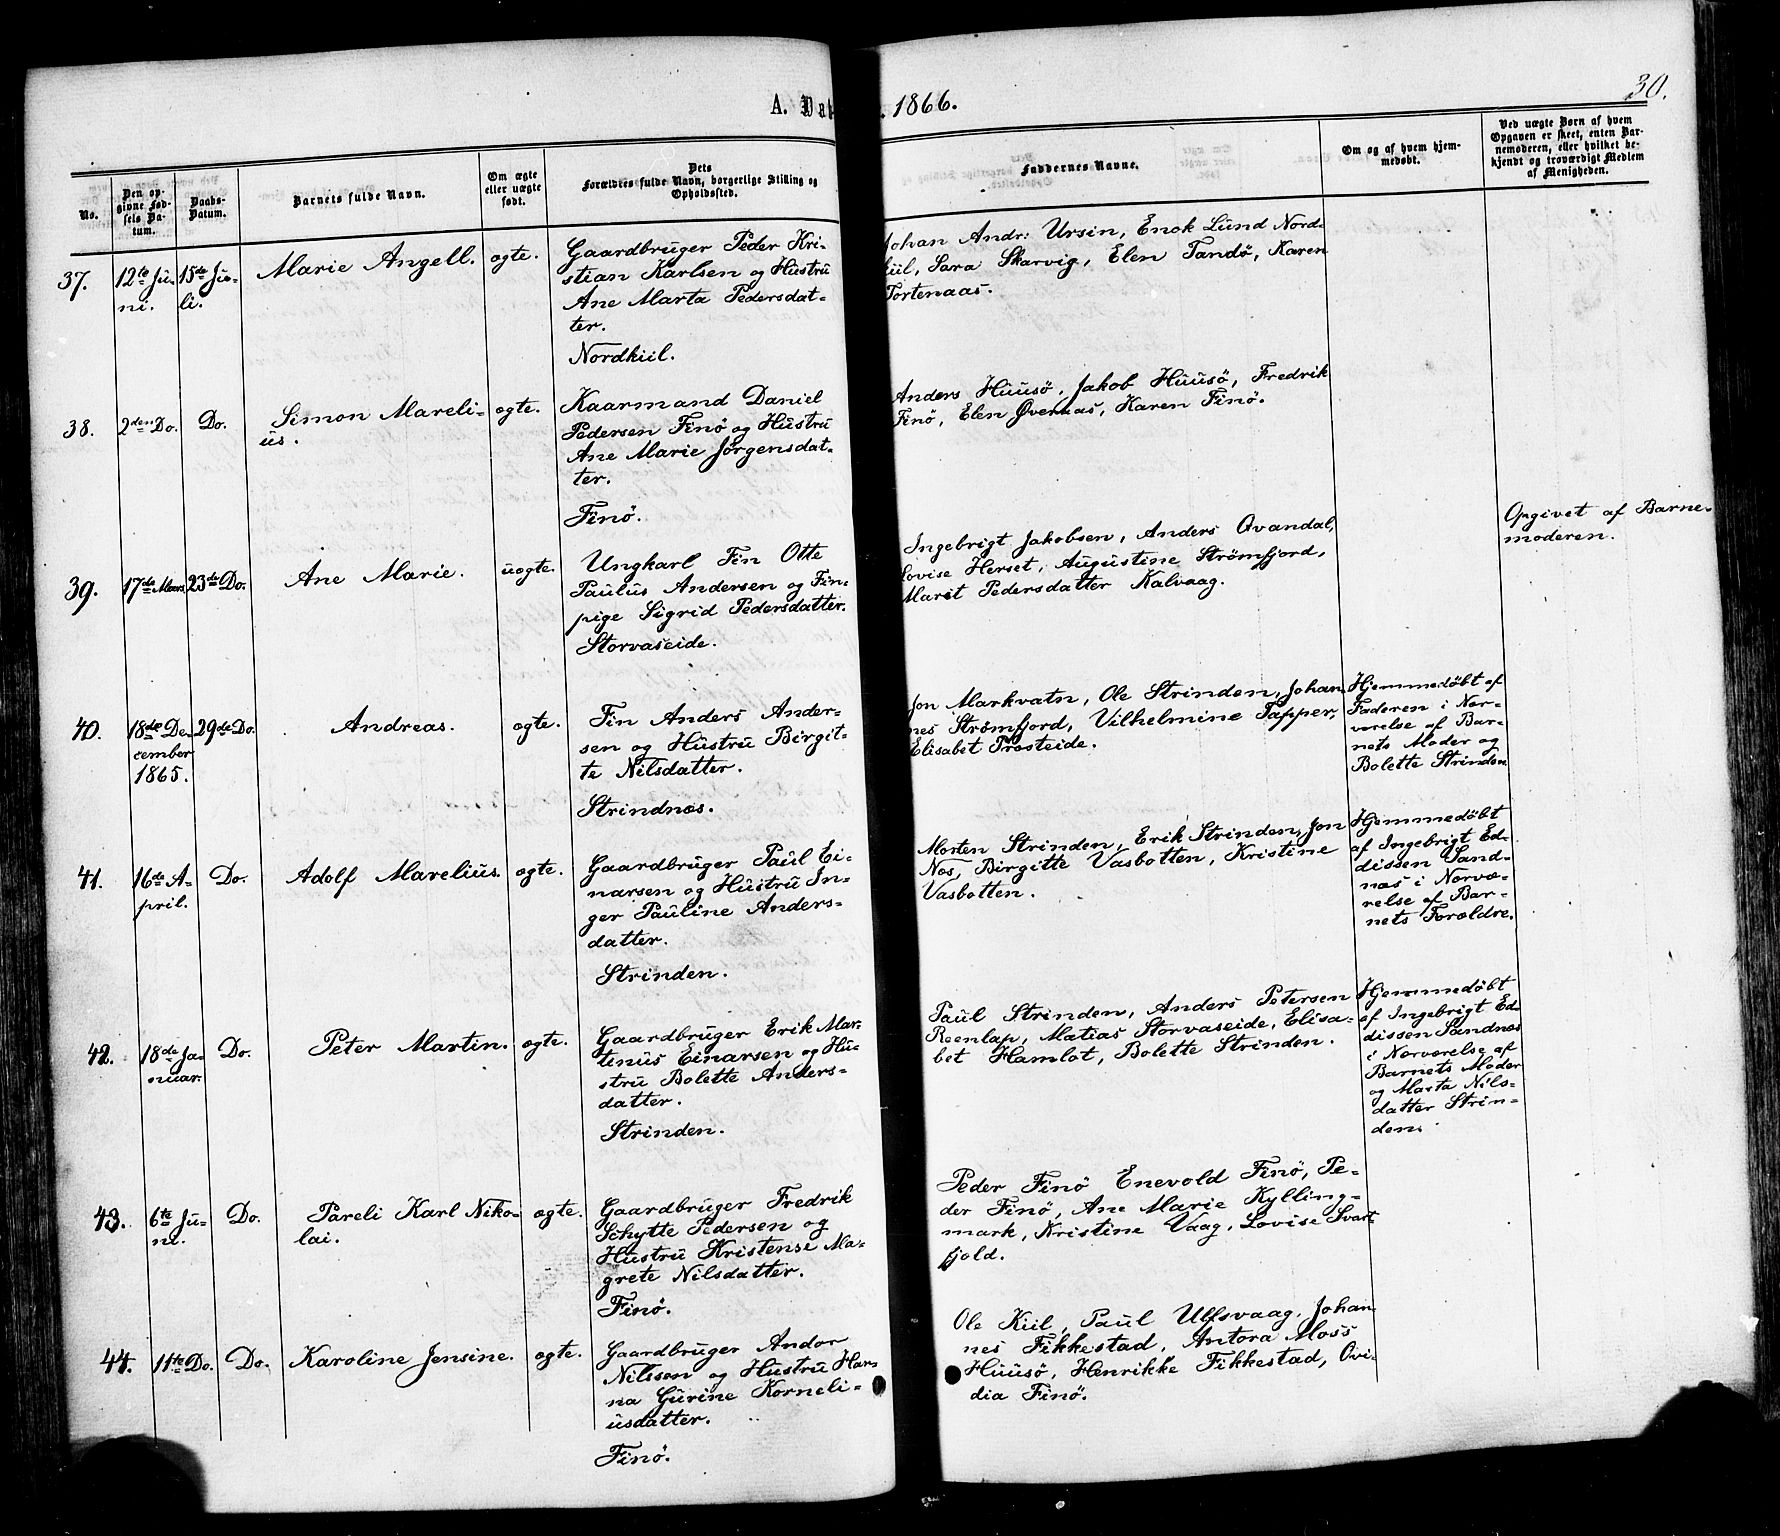 A. Daa
1866.
30.
No.
Den op-
givne Fød-
sels Da-
tum.
Daabs-
Datum.
Barnets fulde Navn.
Om ægte
eller uægte
født.
Dets
Forældres fulde Navn, borgerlige Stilling og
Opholdssted.
Faddernes Navne.
Om og af hvem hjem-
medøbt.
Ved uægte Børn af hvem
Opgaven er skeet, enten Bar-
nemoderen, eller hvilket be-
kjendt og troværdigt Medlem
af Menigheden.
37.
12te Ju-
ni.
15de Ju-
li.
Marie Angell.
ægte.
Gaardbruger Peder Kri-
stian Karlsen og Hustru
Ane Marta Pedersdat-
ter.
Nordkiil.
Johan Andr: Ursin, Enok Lund Nord-
kiil, Sara Skarvig, Elen Tandø, Karen
Tortenaas.
38.
2den Do.
Do.
Simon Mareli-
us.
ægte.
Kaarmand Daniel
Pedersen Finø og Hustru
Ane Marie Jørgensdat-
ter.
Finø.
Anders Huusø, Jakob Huusø, Fredrik
Finø, Elen Øvernæs, Karen Finø.
39.
17de Mars
23de Do.
Ane Marie.
uægte.
Ungkarl Fin Otte
Paulus Andersen og Fin-
pige Sigrid Pedersdatter.
Storvaseide.
Ingebrigt Jakobsen, Anders Qvandal,
Lovise Herset, Augustine Strømfjord,
Marit Pedersdatter Kalvaag.
Opgivet af Barne-
moderen.
40.
18de De-
cember
1865.
29de Do.
Andreas.
ægte.
Fin Anders Ander-
sen og Hustru Birgit-
te Nilsdatter.
Strindnæs.
Jon Markvatn, Ole Strinden, Johan-
nes Strømfjord, Vilhelmine Tapper,
Elisabet Prosteide.
Hjemmedøbt af
Faderen i Nær-
værelse af Bar-
nets Moder og
Bolette Strinden
41.
16de A-
pril.
Do.
Adolf Marelius.
ægte.
Gaardbruger Paul Ei-
narsen og Hustru In-
ger Pauline Anders-
datter.
Strinden.
Morten Strinden, Erik Strinden, Jon
Næs, Birgitte Vasbotten, Kristine
Vasbotten.
Hjemmedøbt
af Ingebrigt Ed-
dissen Sand-
næs i Nærvæ-
relse af Bar-
nets Forældre.
42.
18de Ja-
nuar.
Do.
Peter Martin.
ægte.
Gaardbruger Erik Mar-
tinus Einarsen og Hu-
stru Bolette Anders-
datter.
Strinden.
Paul Strinden, Anders Petersen
Reenlap, Matias Storvaseide, Elisa-
bet Hamlot, Bolette Strinden.
Hjemmedøbt
af Ingebrigt Ed-
dissen Sandnæs
i Nærværelse af
Barnets Moder
og Marta Nils-
datter Strin-
den.
43.
6te Ju-
ni.
Do.
Pareli Karl Niko-
lai.
ægte.
Gaardbruger Fredrik
Schytte Pedersen og
Hustru Kristense Ma-
grete Nilsdatter.
Finø.
Peder Finø Enevold Finø, Pe-
der Finø, Ane Marie Kylling-
mark, Kristine Vaag, Lovise Svart
fjeld.
44.
11te Do.
Do.
Karoline Jensine.
ægte.
Gaardbruger Andor
Nilssen og Hustru Han-
na Gurine Korneli-
usdatter.
Finø.
Ole Kiil, Paul Ulfsvaag, Johan-
nes Fikkestad, Antora Moss
Huusø, Henrikke Fikkestad, Ovi-
dia Finø.